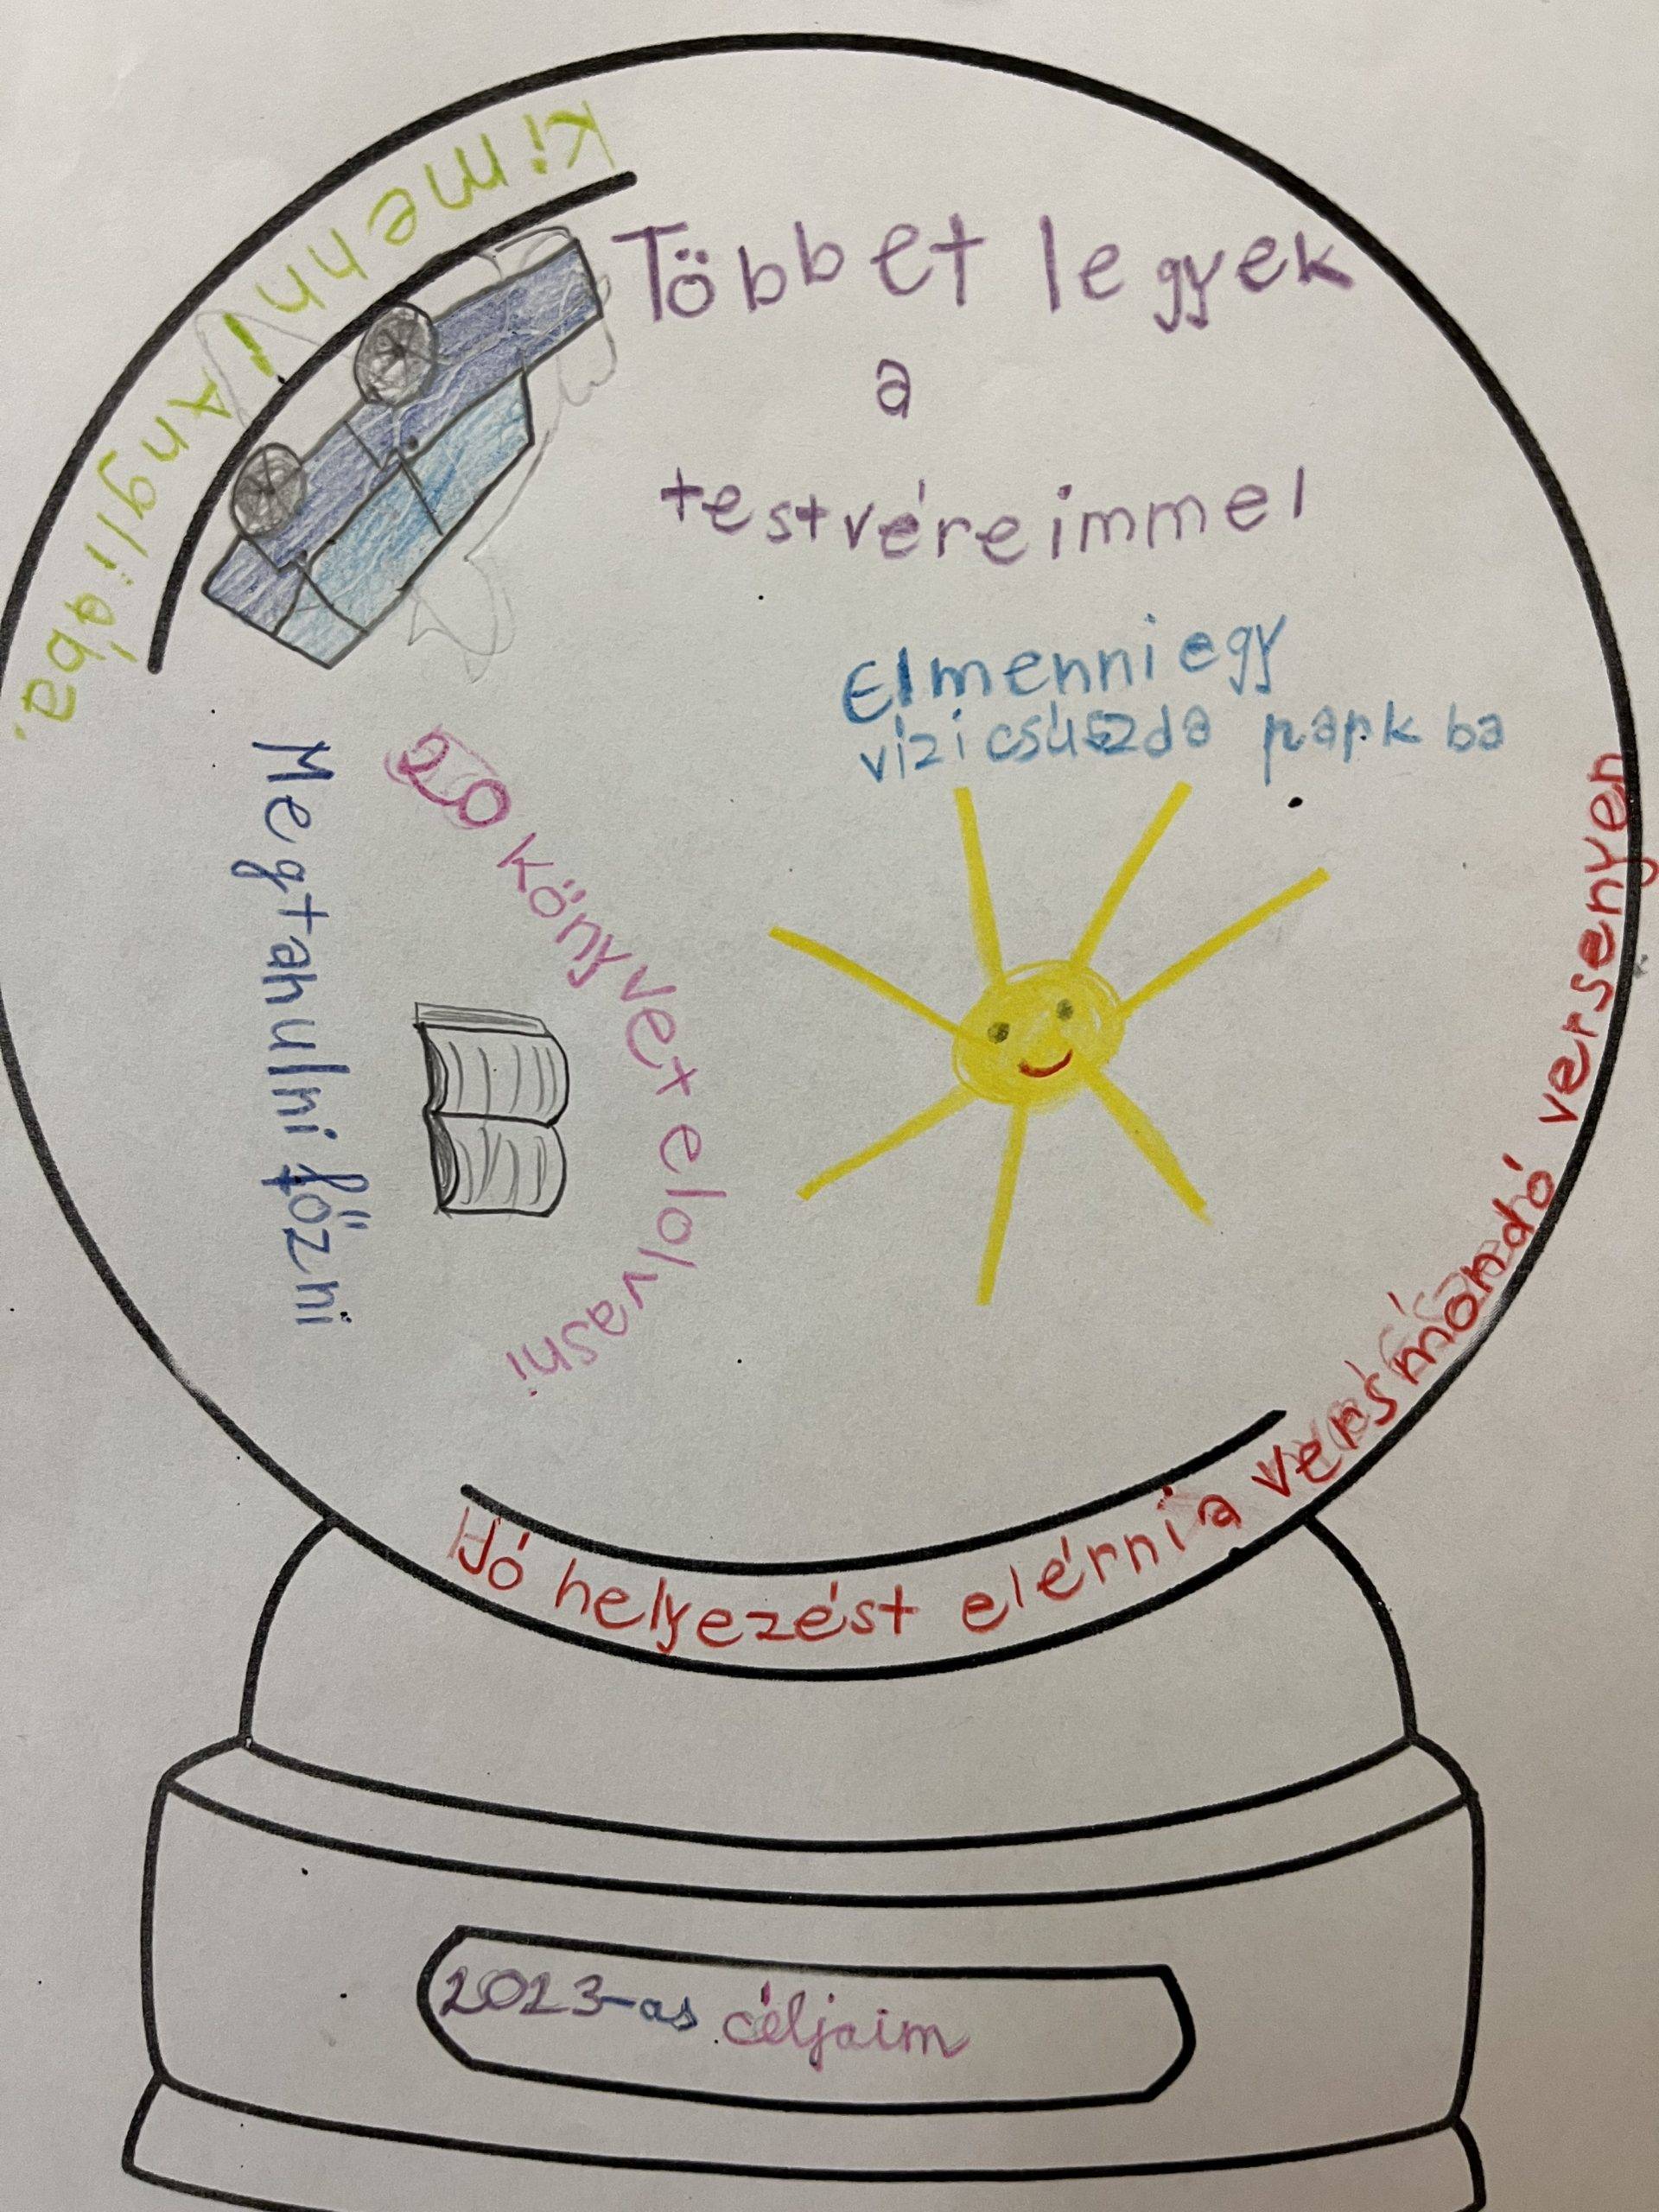 Kimenni Angliába.
Többet legyek
a
testvéreimmel
Elmenni egy
vízicsúszda park ba
20 könyvet elolvasni
Megtahulni főzni
Jó helyezést elérni a versmondó versenyen
2023-as céljaim